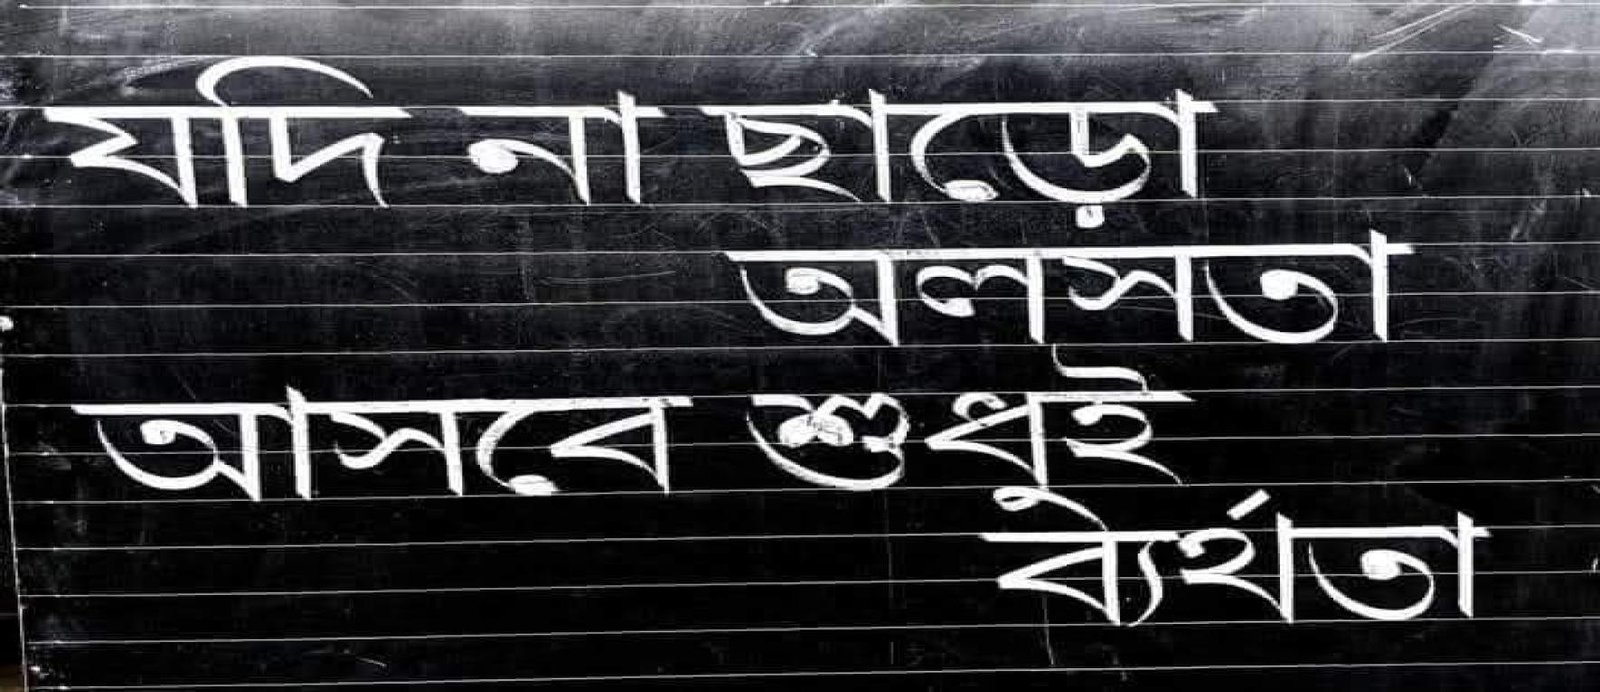 যদি না ছাড়ো
অলসতা
আসবে শুধুই
ব্যর্থতা